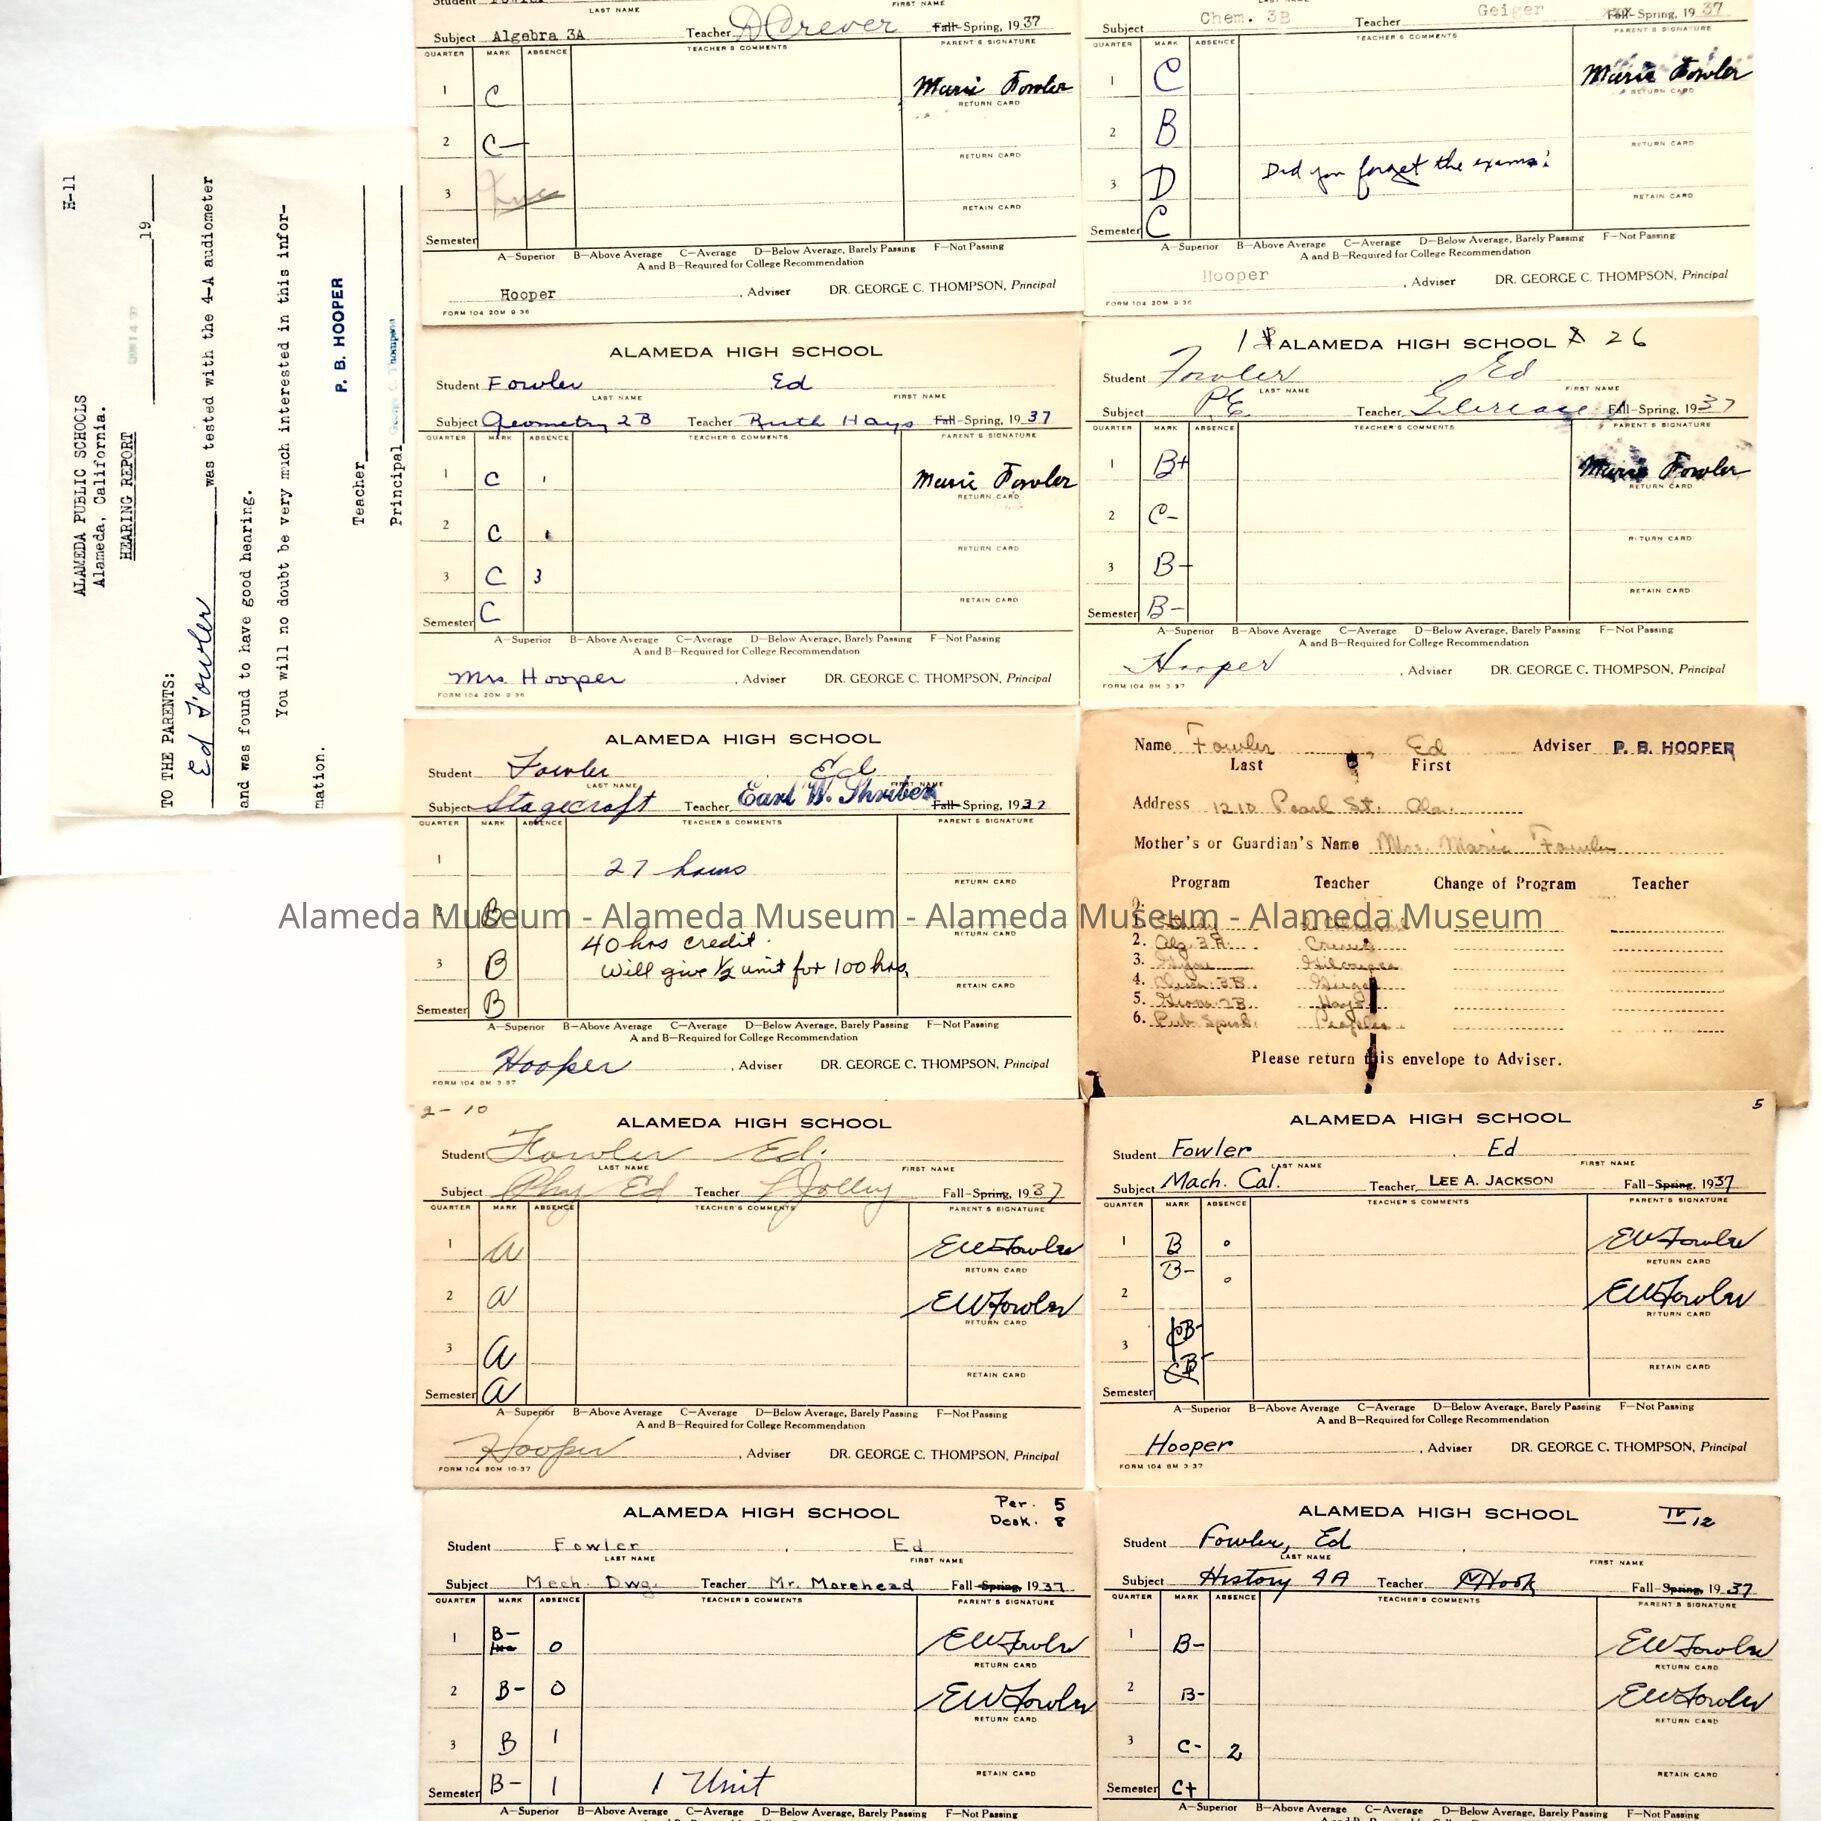 H-11
ALAMEDA PUBLIC SCHOOLS
Alameda, California.
HEARING REPORT
19
TO THE PARENTS:
Ed Fowler was tested with the 4-A audiometer
and was found to have good hearing.
You will no doubt be very much interested in this infor-
mation.
P. B. HOOPER
Teacher
Principal George C. Thompson
Student
LAST NAME FIRST NAME
Subject Algebra 3A Teacher Fall-Spring, 1937
QUARTER MARK ABSENCE TEACHER'S COMMENTS PARENT'S SIGNATURE
1 C Marie Fowler
RETURN CARD
2 C-
RETURN CARD
3
RETAIN CARD
Semester
A—Superior B—Above Average C—Average D—Below Average, Barely Passing F—Not Passing
A and B—Required for College Recommendation
Hooper, Adviser DR. GEORGE C. THOMPSON, Principal
FORM 104 20M 9 36
LAST NAME
Subject Chem. 3B Teacher Geiger Fall-Spring, 1937
QUARTER MARK ABSENCE TEACHER'S COMMENTS PARENT'S SIGNATURE
1 C Marie Fowler
RETURN CARD
2 B
RETURN CARD
3 D Did you forget the exams?
RETAIN CARD
Semester C
A—Superior B—Above Average C—Average D—Below Average, Barely Passing F—Not Passing
A and B—Required for College Recommendation
Hooper, Adviser DR. GEORGE C. THOMPSON, Principal
FORM 104 20M 9 36
ALAMEDA HIGH SCHOOL
Student Fowler Ed
LAST NAME FIRST NAME
Subject Geometry 2B Teacher Ruth Hays Fall-Spring, 1937
QUARTER MARK ABSENCE TEACHER'S COMMENTS PARENT'S SIGNATURE
1 C Marie Fowler
RETURN CARD
2 C
RETURN CARD
3 C 3
RETAIN CARD
Semester C
A—Superior B—Above Average C—Average D—Below Average, Barely Passing F—Not Passing
A and B—Required for College Recommendation
Mrs Hooper, Adviser DR. GEORGE C. THOMPSON, Principal
FORM 104 20M 9 36
ALAMEDA HIGH SCHOOL 26
Student Fowler Ed
LAST NAME FIRST NAME
Subject P.E. Teacher Fall-Spring, 1937
QUARTER MARK ABSENCE TEACHER'S COMMENTS PARENT'S SIGNATURE
1 B+ Marie Fowler
RETURN CARD
2 C-
RETURN CARD
3 B-
RETAIN CARD
Semester B-
A—Superior B—Above Average C—Average D—Below Average, Barely Passing F—Not Passing
A and B—Required for College Recommendation
Hooper, Adviser DR. GEORGE C. THOMPSON, Principal
FORM 104 8M 3 37
ALAMEDA HIGH SCHOOL
Student Fowler Ed
LAST NAME FIRST NAME
Subject Stagecraft Teacher Earl W. Shriber Fall-Spring, 1937
QUARTER MARK ABSENCE TEACHER'S COMMENTS PARENT'S SIGNATURE
1 27 hours
RETURN CARD
2 B
RETURN CARD
40 hrs credit.
3 B Will give ½ unit for 100 hrs.
RETAIN CARD
Semester B
A—Superior B—Above Average C—Average D—Below Average, Barely Passing F—Not Passing
A and B—Required for College Recommendation
Hooper, Adviser DR. GEORGE C. THOMPSON, Principal
FORM 104 8M 3 37
Name Fowler Ed Adviser P. B. HOOPER
Last First
Address 1210 Pearl St. Ala.
Mother's or Guardian's Name Mrs. Marie Fowler
Program Teacher Change of Program Teacher
1. Study
2. Alg. 3A
3.
4. Chem. 3B. Geiger
5. Geom. 2B Hays
6. Pub. Speak. Peoples
Please return this envelope to Adviser.
Alameda Museum - Alameda Museum - Alameda Museum - Alameda Museum
2-10
ALAMEDA HIGH SCHOOL
Student Fowler Ed.
LAST NAME FIRST NAME
Subject Phy Ed Teacher Jolley Fall-Spring, 1937
QUARTER MARK ABSENCE TEACHER'S COMMENTS PARENT'S SIGNATURE
1 A EW Fowler
RETURN CARD
2 A EW Fowler
RETURN CARD
3 A
RETAIN CARD
Semester A
A—Superior B—Above Average C—Average D—Below Average, Barely Passing F—Not Passing
A and B—Required for College Recommendation
Hooper, Adviser DR. GEORGE C. THOMPSON, Principal
FORM 104 30M 10-37
5
ALAMEDA HIGH SCHOOL
Student Fowler Ed
LAST NAME FIRST NAME
Subject Mach. Cal. Teacher LEE A. JACKSON Fall-Spring, 1937
QUARTER MARK ABSENCE TEACHER'S COMMENTS PARENT'S SIGNATURE
1 B 0 EW Fowler
RETURN CARD
2 B- 0 EW Fowler
RETURN CARD
3 B-
RETAIN CARD
Semester B-
A—Superior B—Above Average C—Average D—Below Average, Barely Passing F—Not Passing
A and B—Required for College Recommendation
Hooper, Adviser DR. GEORGE C. THOMPSON, Principal
FORM 104 8M 3 37
Per. 5
Desk. 8
ALAMEDA HIGH SCHOOL
Student Fowler Ed
LAST NAME FIRST NAME
Subject Mech. Dwg. Teacher Mr. Morehead Fall-Spring, 1937
QUARTER MARK ABSENCE TEACHER'S COMMENTS PARENT'S SIGNATURE
1 B- 0 EW Fowler
RETURN CARD
2 B- 0 EW Fowler
RETURN CARD
3 B 1
RETAIN CARD
Semester B- 1 1 Unit
A—Superior B—Above Average C—Average D—Below Average, Barely Passing F—Not Passing
ALAMEDA HIGH SCHOOL IV 12
Student Fowler, Ed
LAST NAME FIRST NAME
Subject History 4A Teacher Hook Fall-Spring, 1937
QUARTER MARK ABSENCE TEACHER'S COMMENTS PARENT'S SIGNATURE
1 B- EW Fowler
RETURN CARD
2 B- EW Fowler
RETURN CARD
3 C- 2
RETAIN CARD
Semester C+
A—Superior B—Above Average C—Average D—Below Average, Barely Passing F—Not Passing